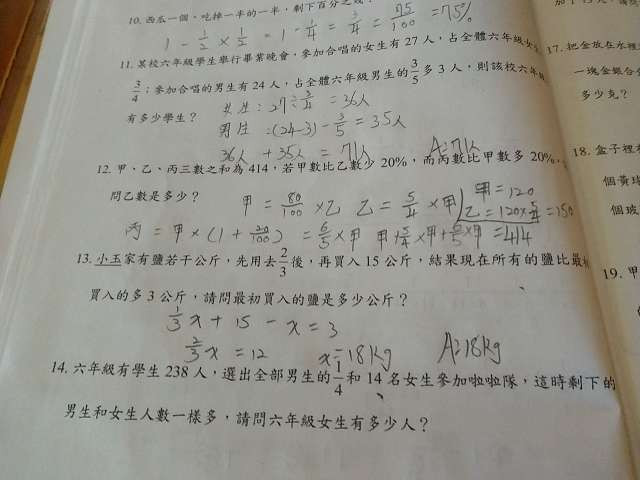 10. 西瓜一個，吃掉一半的一半，剩下百分之幾
1 - 1/2 × 1/2 = 1 - 1/4 = 3/4 = 75/100 = 75%
11. 某校六年級學生舉行畢業晚會，參加合唱的女生有 27 人，占全體六年級女
3/4；參加合唱的男生有 24 人，占全體六年級男生的 3/5 多 3 人，則該校六年
有多少學生？
女生：27 ÷ 3/4 = 36人
男生：(24-3) ÷ 3/5 = 35人
36人 + 35人 = 71人 A：71人
12. 甲、乙、丙三數之和為 414，若甲數比乙數少 20%，而丙數比甲數多 20%，
問乙數是多少？
甲 = 80/100 × 乙 乙 = 5/4 × 甲 甲 = 120
乙 = 120 × 5/4 = 150
丙 = 甲 × (1 + 20/100) = 6/5 × 甲 甲 + 5/4 × 甲 + 6/5 × 甲 = 414
13. 小玉家有鹽若干公斤，先用去 2/3 後，再買入 15 公斤，結果現在所有的鹽比最初
買入的多 3 公斤，請問最初買入的鹽是多少公斤？
1/3 x + 15 - x = 3
2/3 x = 12 x = 18kg A：18kg
14. 六年級有學生 238 人，選出全部男生的 1/4 和 14 名女生參加啦啦隊，這時剩下的
男生和女生人數一樣多，請問六年級女生有多少人？
17. 把金放在水裡
一塊金銀合
多少克？
18. 盒子裡
個黃
個玻
19. 甲